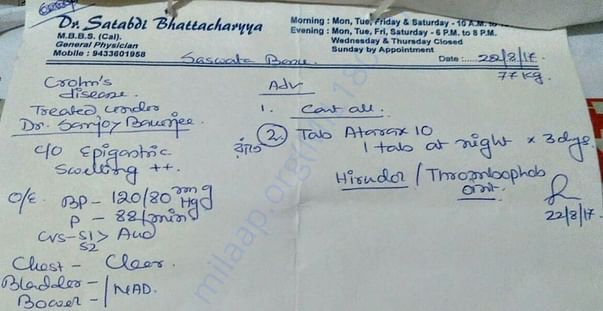 Dr. Satabdi Bhattacharyya
M.B.B.S. (Cal).
General Physician
Mobile : 9433601958
Morning : Mon, Tue, Friday & Saturday - 10 A.M. to
Evening : Mon, Tue, Fri, Saturday - 6 P.M. to 8 P.M.
Wednesday & Thursday Closed
Sunday by Appointment
Date :
22/8/17
77 kg.
Crohn's
disease.
Treated under
Dr. Sanjoy Banerjee.
c/o Epigastric
Swelling ++.
O/E. BP - 120/80 mm Hg
P - 88/min
CVS - S1 S2 > Aud
Chest - Clear.
Bladder -
Bowel - / NAD.
Adv
1. Cont all.
2. Tab Atarax 10
1 tab at night x 3 days
Hirudoi / Thrombophob
oint.
22/8/17.
milaap.org